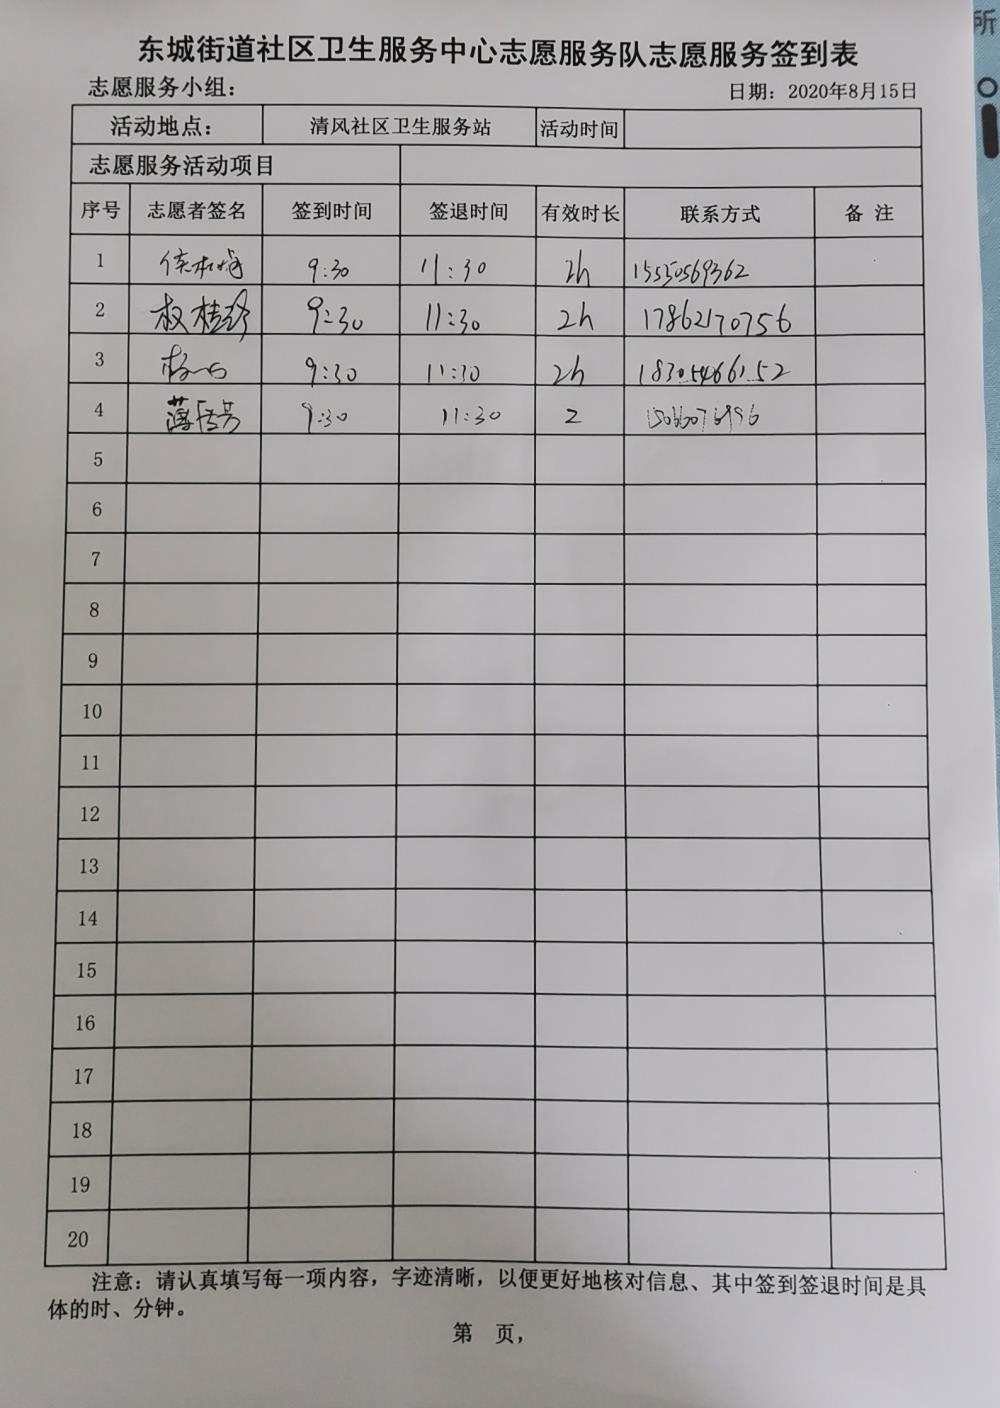 所
东城街道社区卫生服务中心志愿服务队志愿服务签到表
志愿服务小组： 日期：2020年8月15日
活动地点： 清风社区卫生服务站 活动时间
志愿服务活动项目
序号 志愿者签名 签到时间 签退时间 有效时长 联系方式 备 注
1 9:30 11:30 2h 15550569362
2 9:30 11:30 2h 17862170756
3 9:30 11:30 2h 18305466152
4 9:30 11:30 2
5
6
7
8
9
10
11
12
13
14
15
16
17
18
19
20
注意：请认真填写每一项内容，字迹清晰，以便更好地核对信息、其中签到签退时间是具
体的时、分钟。
第 页，